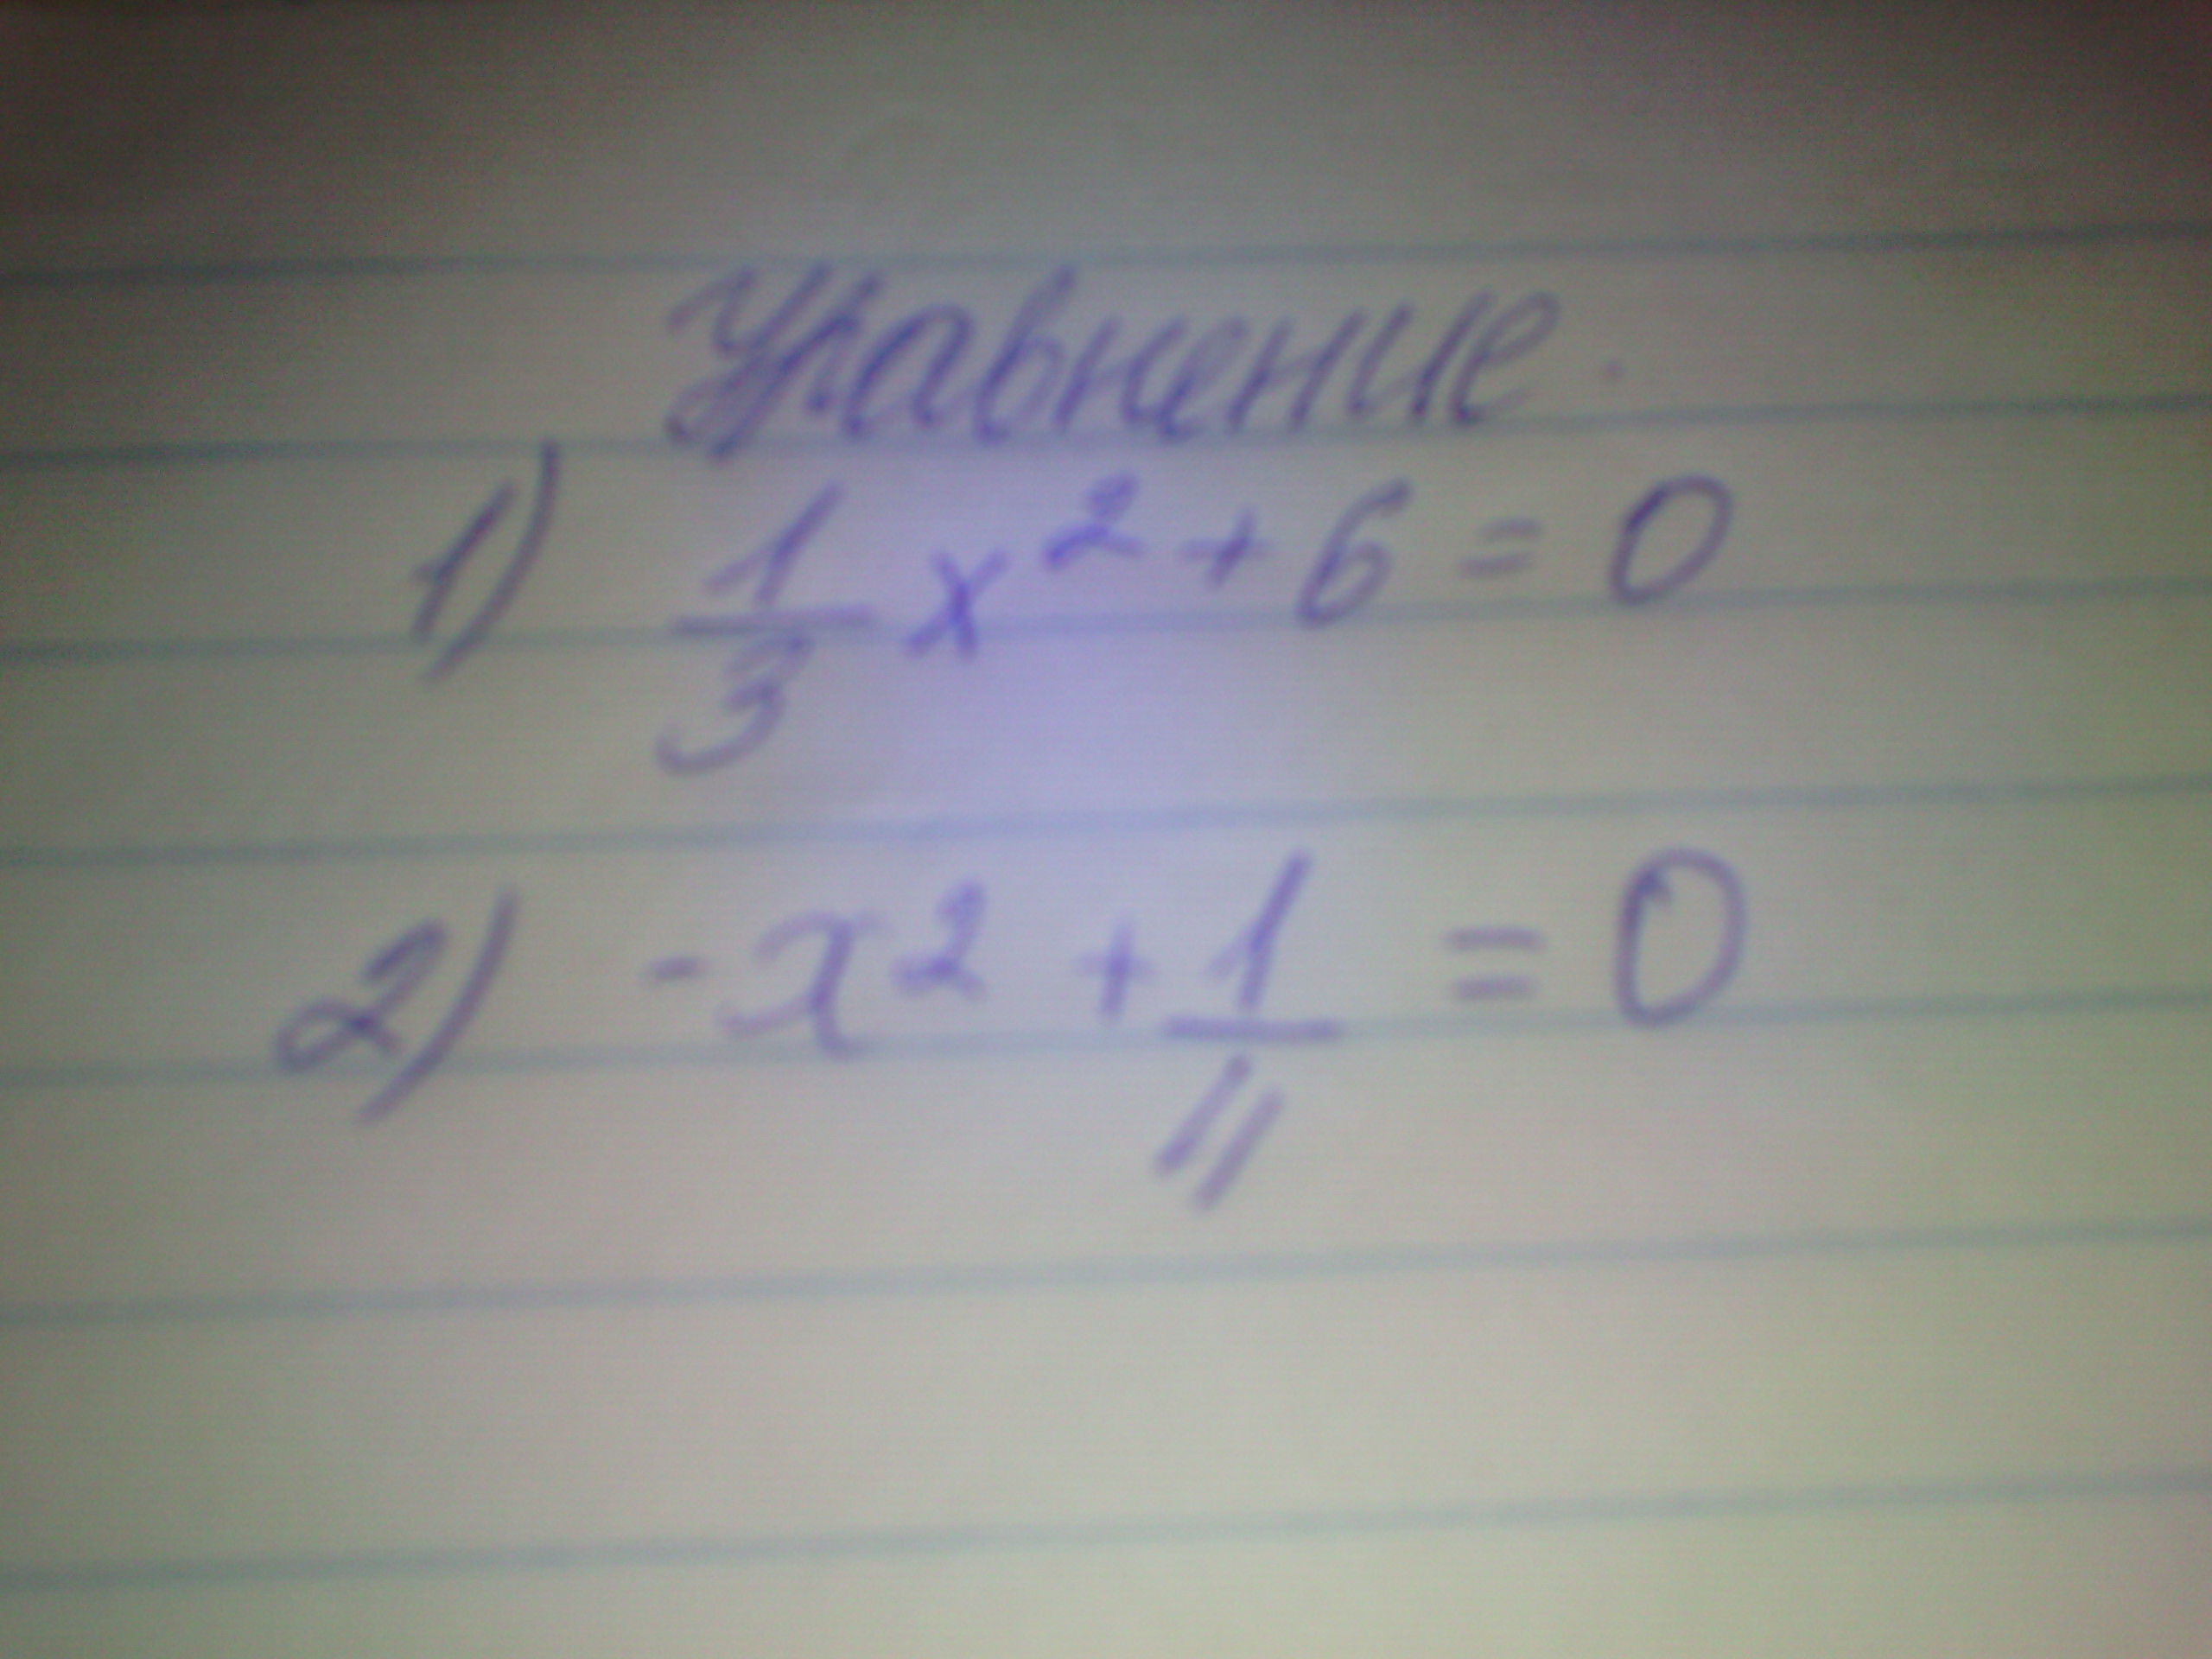 Уравнение.
1) 1/3 x² + 6 = 0
2) -x² + 1/11 = 0